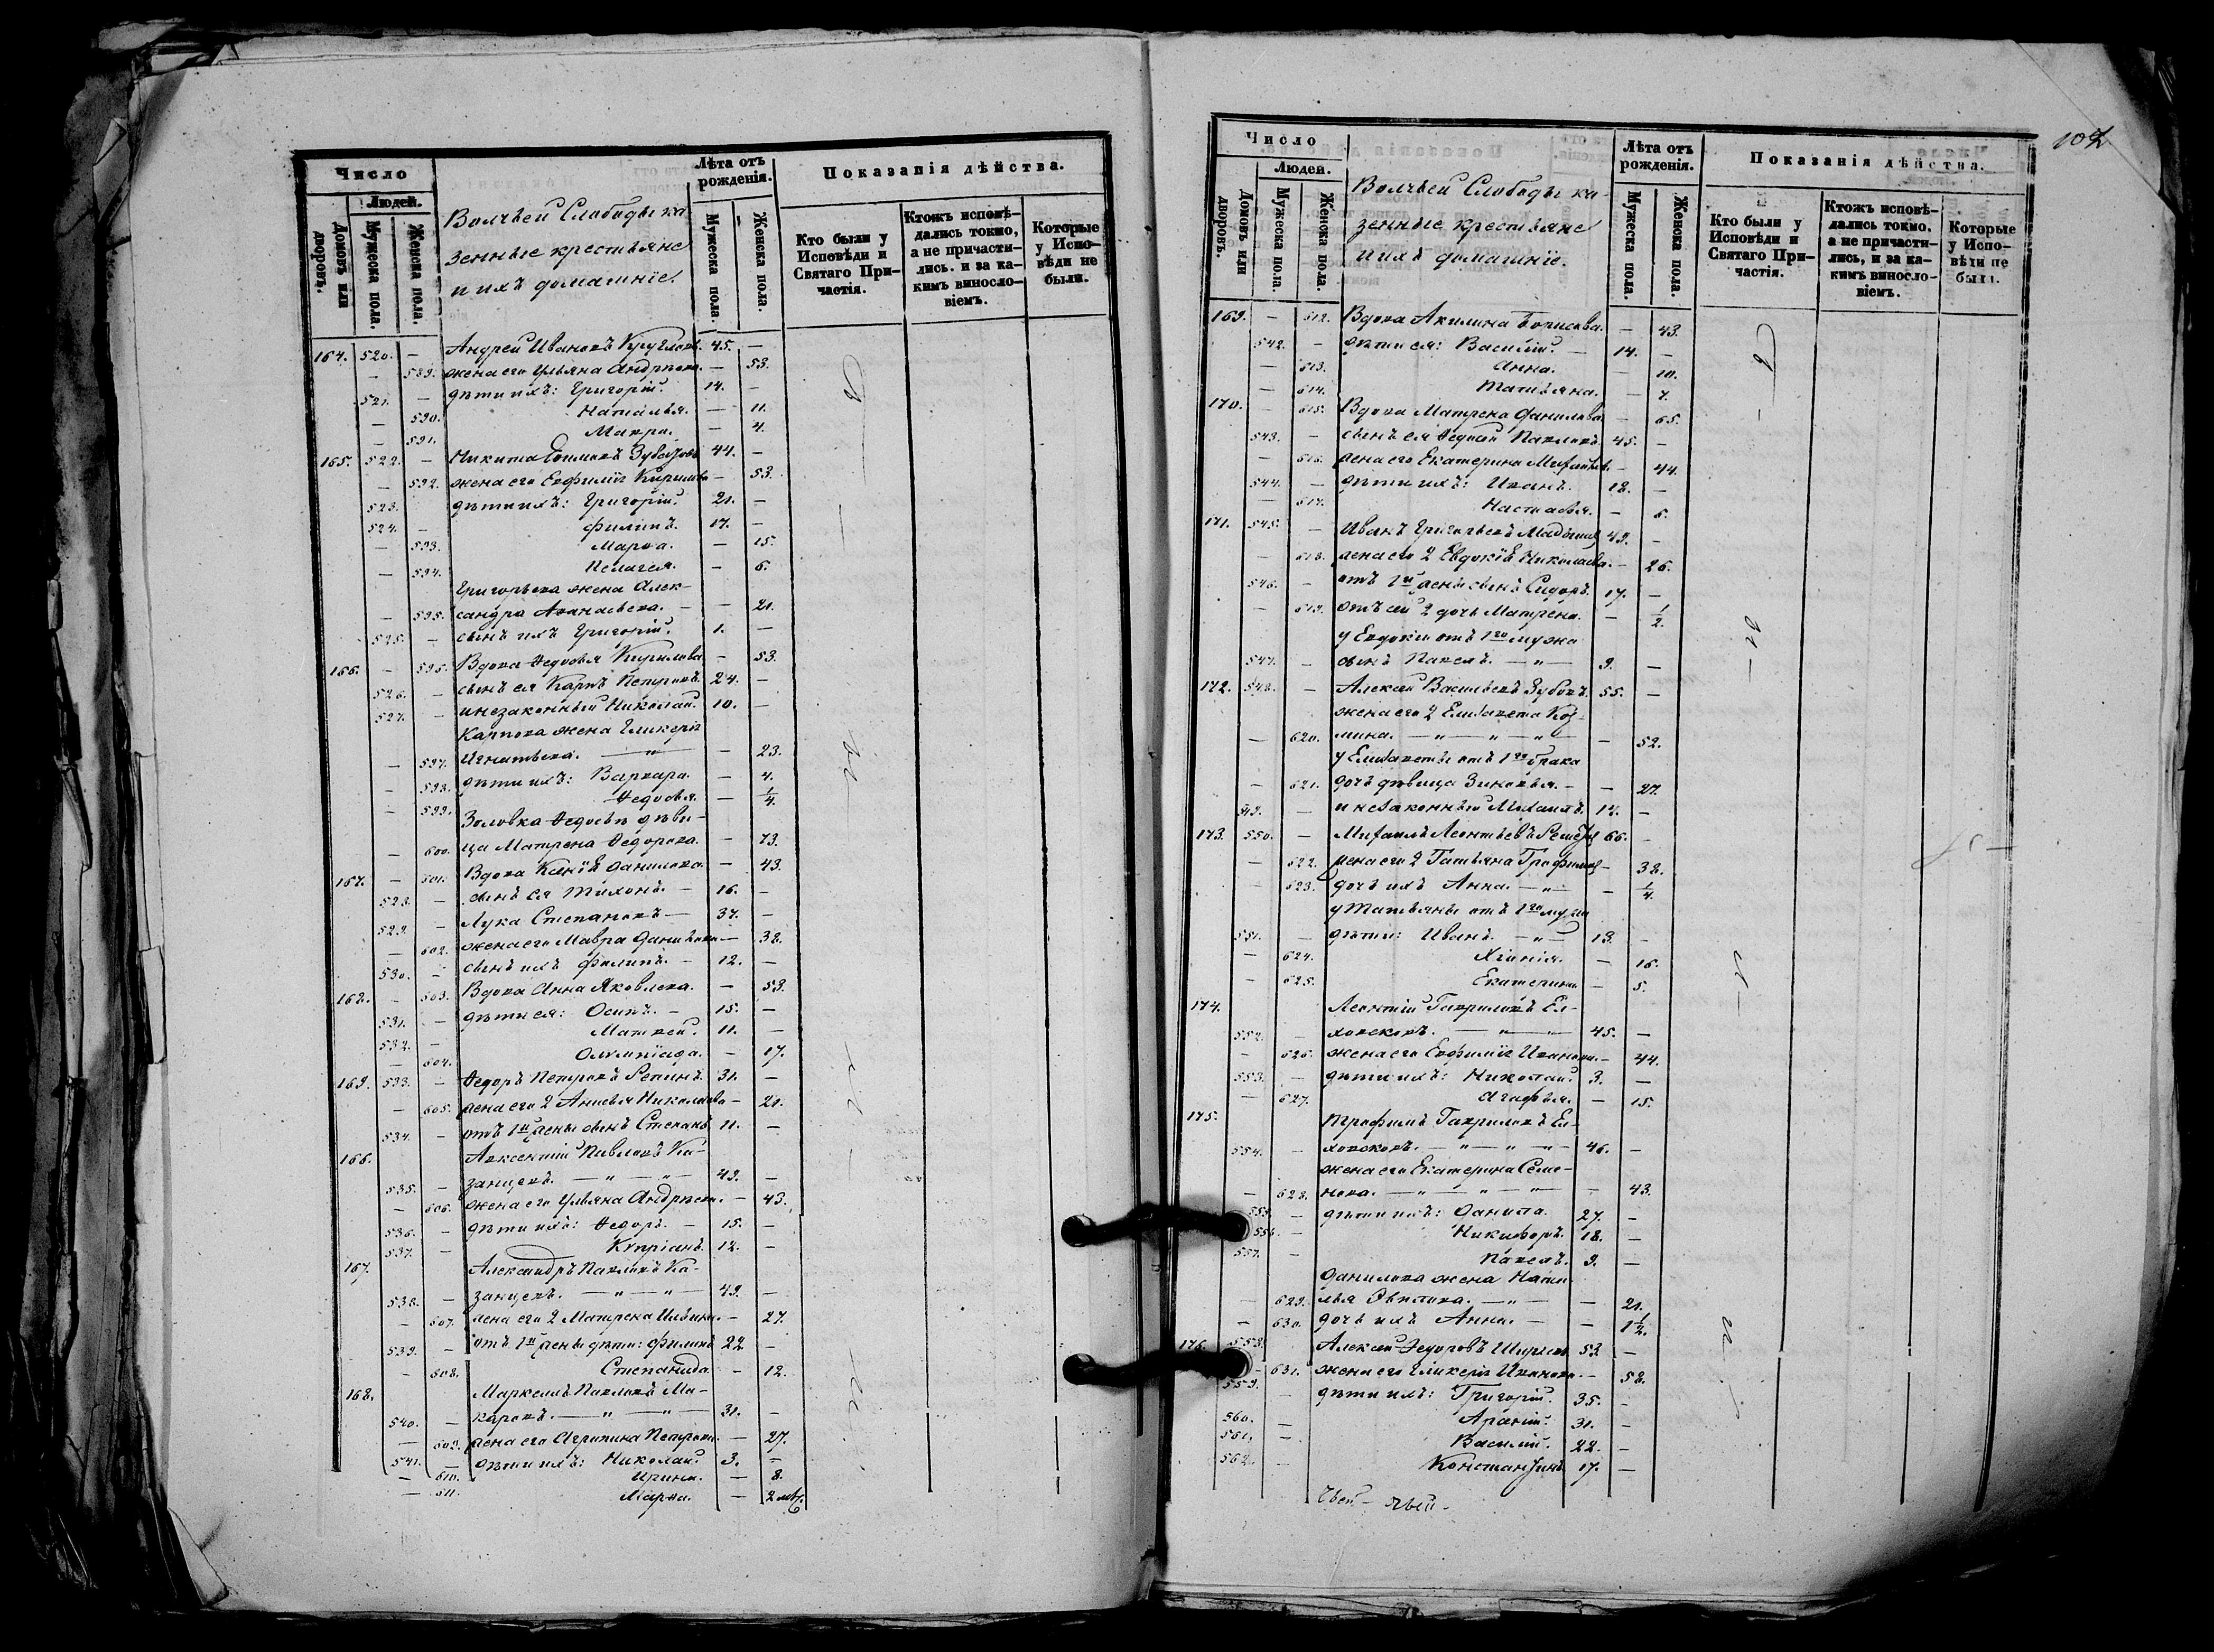 Число
Людей.
Домовъ или дворовъ.
Мужеска пола.
Женска пола.
Волчьей Слободы ка-
зенные крестьяне
и ихъ домашніе.
Лѣта отъ рожденія.
Мужеска пола.
Женска пола.
Показанія дѣйства.
Кто были у Исповѣди и Святаго При-частія.
Ктожъ исповѣ-дались токмо, а не причасти-лись, и за ка-кимъ винослo-віемъ.
Которые у Испо-вѣди не были.
164. 520. — Андрей Ивановъ Кругловъ. 45. —
— 589. жена его Ульяна Андреева. — 53.
521. — дѣти ихъ: Григорій. 14. —
— 590. Наталья. — 11.
— 591. Мавра. — 4.
165. 522. — Никита 44. —
— 592. жена его Евфимія — 53.
523. дѣти ихъ: Григорій. 21. —
524. — Филипъ. 17. —
— 593. Марѳа. — 15.
— 594. Пелагея. — 6.
Григорьева жена Алек-
— 595. сандра Аѳанасьева. — — 21.
525. — сынъ ихъ Григорій. 1. —
166. — 596. Вдова Ѳедосья Кирилова — 53.
526. — сынъ ея Карпъ Петровъ. 24. —
527. — и незаконный Николай. 10. —
Карпова жена Гликерія
— 597. Игнатьева. — „ — — 23.
— 598. дѣти ихъ: Варвара. — 4.
— 599. Ѳедосья. — 1/4.
Золовка Ѳедосьи дѣви-
— 600. ца Матрена Ѳедорова. — 73.
167. — 601. Вдова Данилова. — 43.
528. — сынъ ея Тихонъ. — 16. —
529. — Лука Степановъ — 37. —
— 602. жена его Мавра — 38.
530. — сынъ ихъ Филипъ. — 12. —
168. — 603. Вдова Анна Яковлева. — 53.
531. — дѣти ея: Осипъ. — 15. —
532. — Матвей. 11. —
— 604. Олимпіада. — 17.
169. 533. — Ѳедоръ Петровъ Репинъ. 31. —
— 605. жена его 2 Анисья Николаева — 21.
534. — отъ 1й жены сынъ Степанъ 11. —
166. Авксентій Павловъ Ка-
535. — занцевъ. — „ — „ — 49. —
— 606. жена его Ульяна Андреева. — 43.
536. — дѣти ихъ: Ѳедоръ. — 15. —
537. — Кипріанъ. 12. —
167. Александръ Павловъ Ка-
538. — занцевъ. — „ — „ — 49. —
— 607. жена его 2 Матрена — 27.
539. — отъ 1й жены дѣти: Филипъ 22 —
— 608. Степанида — 12.
168. Маркелъ Павловъ Ма-
540. — каровъ. — „ — „ — 31. —
— 609. жена его Агрипина Петрова. — 27.
541. — дѣти ихъ: Николай. 3. —
— 610. Ирина. — 8.
— 611. Марѳа. — 2 мѣ.
102
Число
Людей.
Домовъ или дворовъ.
Мужеска пола.
Женска пола.
Волчьей Слободы ка-
зенные крестьяне
и ихъ домашніе.
Лѣта отъ рожденія.
Мужеска пола.
Женска пола.
Показанія дѣйства.
Кто были у Исповѣди и Святаго При-частія.
Ктожъ исповѣ-дались токмо, а не причасти-лись, и за ка-кимъ винослo-віемъ.
Которые у Испо-вѣди не были.
169. — 612. Вдова Акилина Борисова. — 43.
542. — дѣти ея: Василій. — 14. —
— 613. Анна. — 10.
— 614. Татьяна. — 7.
170. — 615. Вдова Матрена Данилова — 65.
543. — сынъ ея Павловъ. 45. —
— 616. жена его Екатерина — 44.
544. — дѣти ихъ: Иванъ. 18. —
— 617. Настасья. — 6.
171. 545. — Иванъ Григорьевъ 49. —
— 618. жена его 2 Евдокія Николаева. — 26.
546. — отъ 1й жены сынъ Сидоръ. 17. —
— 619. отъ сей 2 дочь Матрена. — 1/2.
у Евдокіи отъ 1го мужа
547. — сынъ Павелъ. — „ — 9. —
172. 548. — Алексей Васильевъ Зубовъ. 55. —
жена его 2 Елизавета Коз-
— 620. мина. — „ — „ — „ — — 52.
у Елизаветы отъ 1го брака
— 621. дочь дѣвица Зиновья. — — 27.
549. — и незаконный Михаилъ. 12. —
173. 550. — Михаилъ Леонтьевъ 66. —
— 622. жена его 2 Татьяна — 38.
— 623. дочь ихъ Анна. — „ — — 1/4.
у Татьяны отъ 1го мужа
551. — дѣти: Иванъ. — „ — 13. —
— 624. — 16.
— 625. Екатерина — 5.
174. Леонтій Гавриловъ Ел-
552. — ховсковъ. — „ — 45. —
— 626. жена его Евфимія Иванова. — 44.
553. — дѣти ихъ: Николай. 3. —
— 627. Агафья. — 15.
175. Трофимъ Гавриловъ Ел-
554. — ховсковъ. — „ — „ — 46. —
жена его Екатерина Семе-
— 628. нова. — „ — „ — „ — — 43.
555. — дѣти ихъ: Данила. 27. —
556. — Никифоръ. 18. —
557. — Павелъ. 9. —
Данилова жена Ната-
— 629. лья — „ — — 21.
— 630. дочь ихъ Анна. — — 1 1/2.
176. 558. Алексей Ѳедоровъ 53 —
— 631. жена его Гликерія Иванова. — 58.
559. — дѣти ихъ: Григорій. 35. —
560. — 31. —
561. — Василій. 22. —
562. — Константинъ 17. —